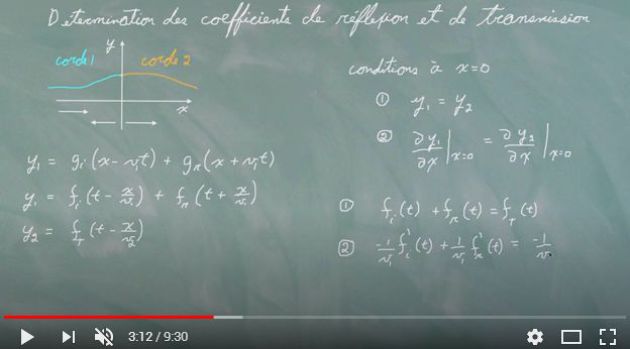 Determination des coefficients de réflexion et de transmission
y
corde 1 corde 2
x
y₁ = gᵢ(x - v₁t) + gᵣ(x + v₁t)
y₁ = fᵢ(t - x/v₁) + fᵣ(t + x/v₁)
y₂ = f_T(t - x/v₂)
conditions à x=0
① y₁ = y₂
② ∂y₁/∂x |x=0 = ∂y₂/∂x |x=0
① fᵢ(t) + fᵣ(t) = f_T(t)
② -1/v₁ fᵢ'(t) + 1/v₁ fᵣ'(t) = -1/v
3:12 / 9:30